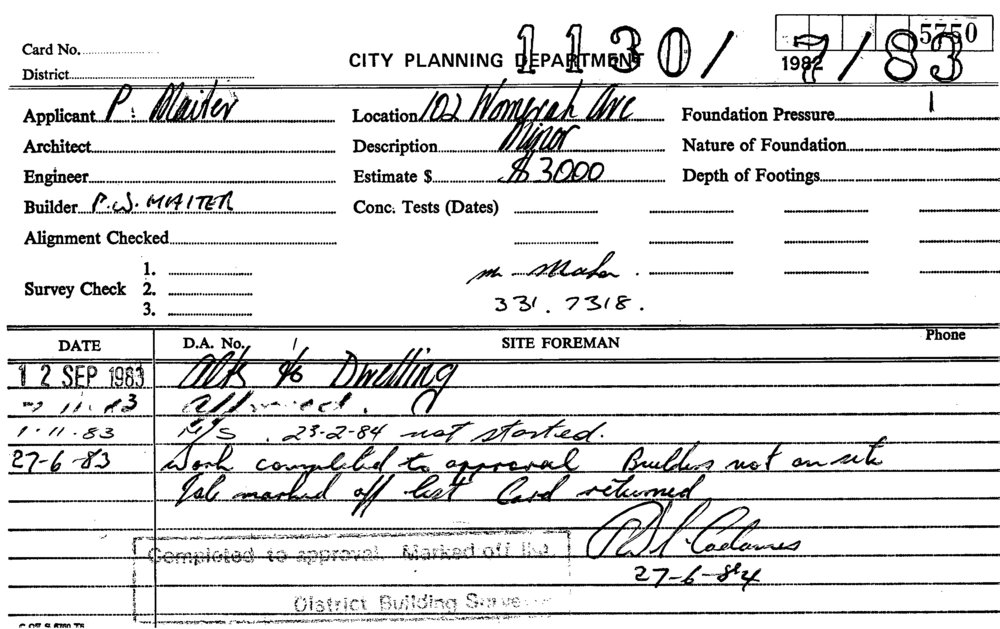 5750
Card No.
CITY PLANNING DEPARTMENT 1130/7/83
1982
District
Applicant P. Maiter Location 102 Womerah Ave Foundation Pressure
Architect Description Minor Nature of Foundation
Engineer Estimate $ $3000 Depth of Footings
Builder P.W. MAITER Conc. Tests (Dates)
Alignment Checked
1.
Survey Check 2.
3.
331.7318.
DATE D.A. No. SITE FOREMAN Phone
12 SEP 1983 Alts to Dwelling
11.83 approved.
1.11.83 N/S. 23-2-84 not started.
27-6-83 Work completed to approval Builders not on site
Job marked off list Card returned
27-6-84
Completed to approval. Marked off
District Building